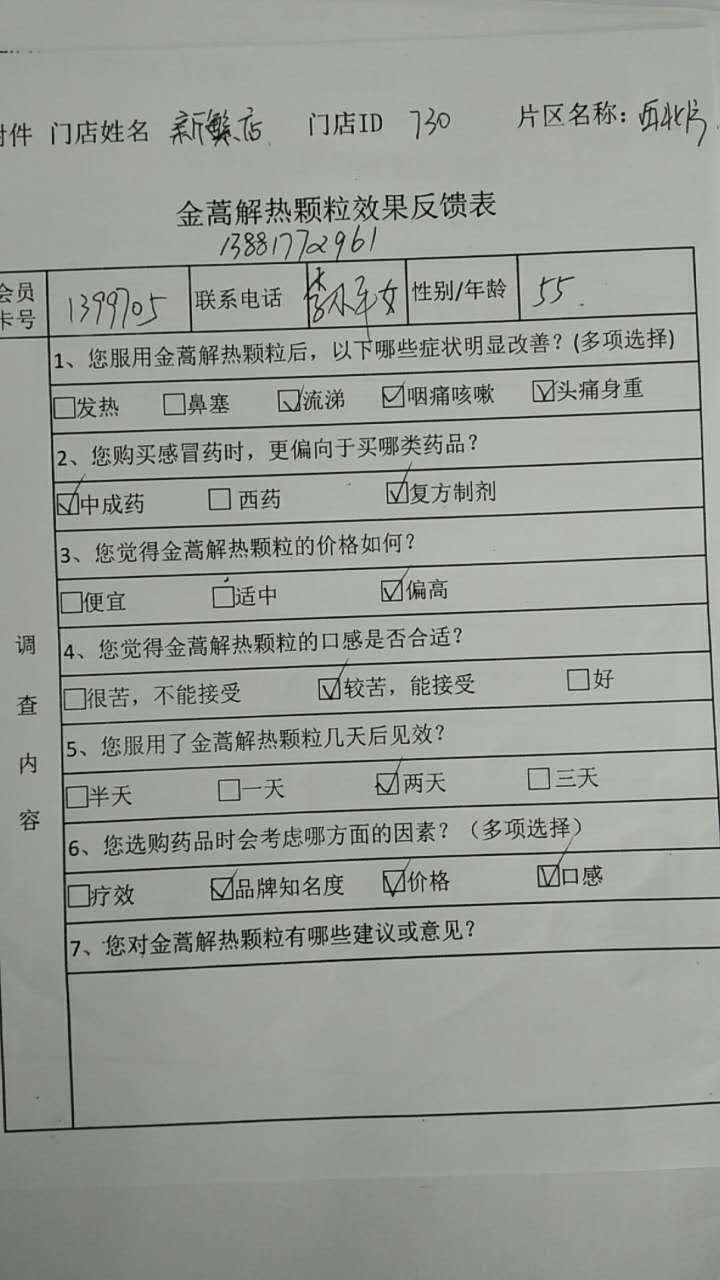 附件 门店姓名 新繁店 门店ID 730 片区名称：西北片
金蒿解热颗粒效果反馈表
13881772961
会员卡号 1399705 联系电话 女 性别/年龄 55.
调查内容
1、您服用金蒿解热颗粒后，以下哪些症状明显改善？(多项选择)
□发热 □鼻塞 ☑流涕 ☑咽痛咳嗽 ☑头痛身重
2、您购买感冒药时，更偏向于买哪类药品？
☑中成药 □西药 ☑复方制剂
3、您觉得金蒿解热颗粒的价格如何？
□便宜 □适中 ☑偏高
4、您觉得金蒿解热颗粒的口感是否合适？
□很苦，不能接受 ☑较苦，能接受 □好
5、您服用了金蒿解热颗粒几天后见效？
□半天 □一天 ☑两天 □三天
6、您选购药品时会考虑哪方面的因素？（多项选择）
□疗效 ☑品牌知名度 ☑价格 ☑口感
7、您对金蒿解热颗粒有哪些建议或意见？